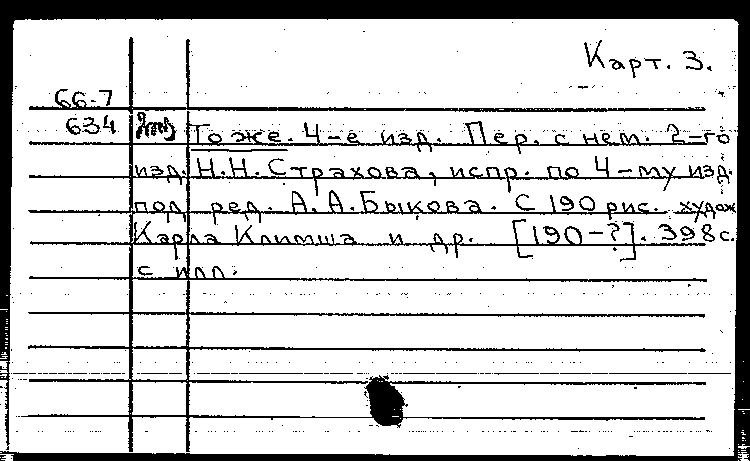 Карт. 3.
66-7
634 То же. 4-е изд. Пер. с нем. 2-го
изд. Н.Н. Страхова, испр. по 4-му изд.
под ред. А.А. Быкова. С 190 рис. худож
Карла Климша и др. [190-?]. 398 с.
с илл.